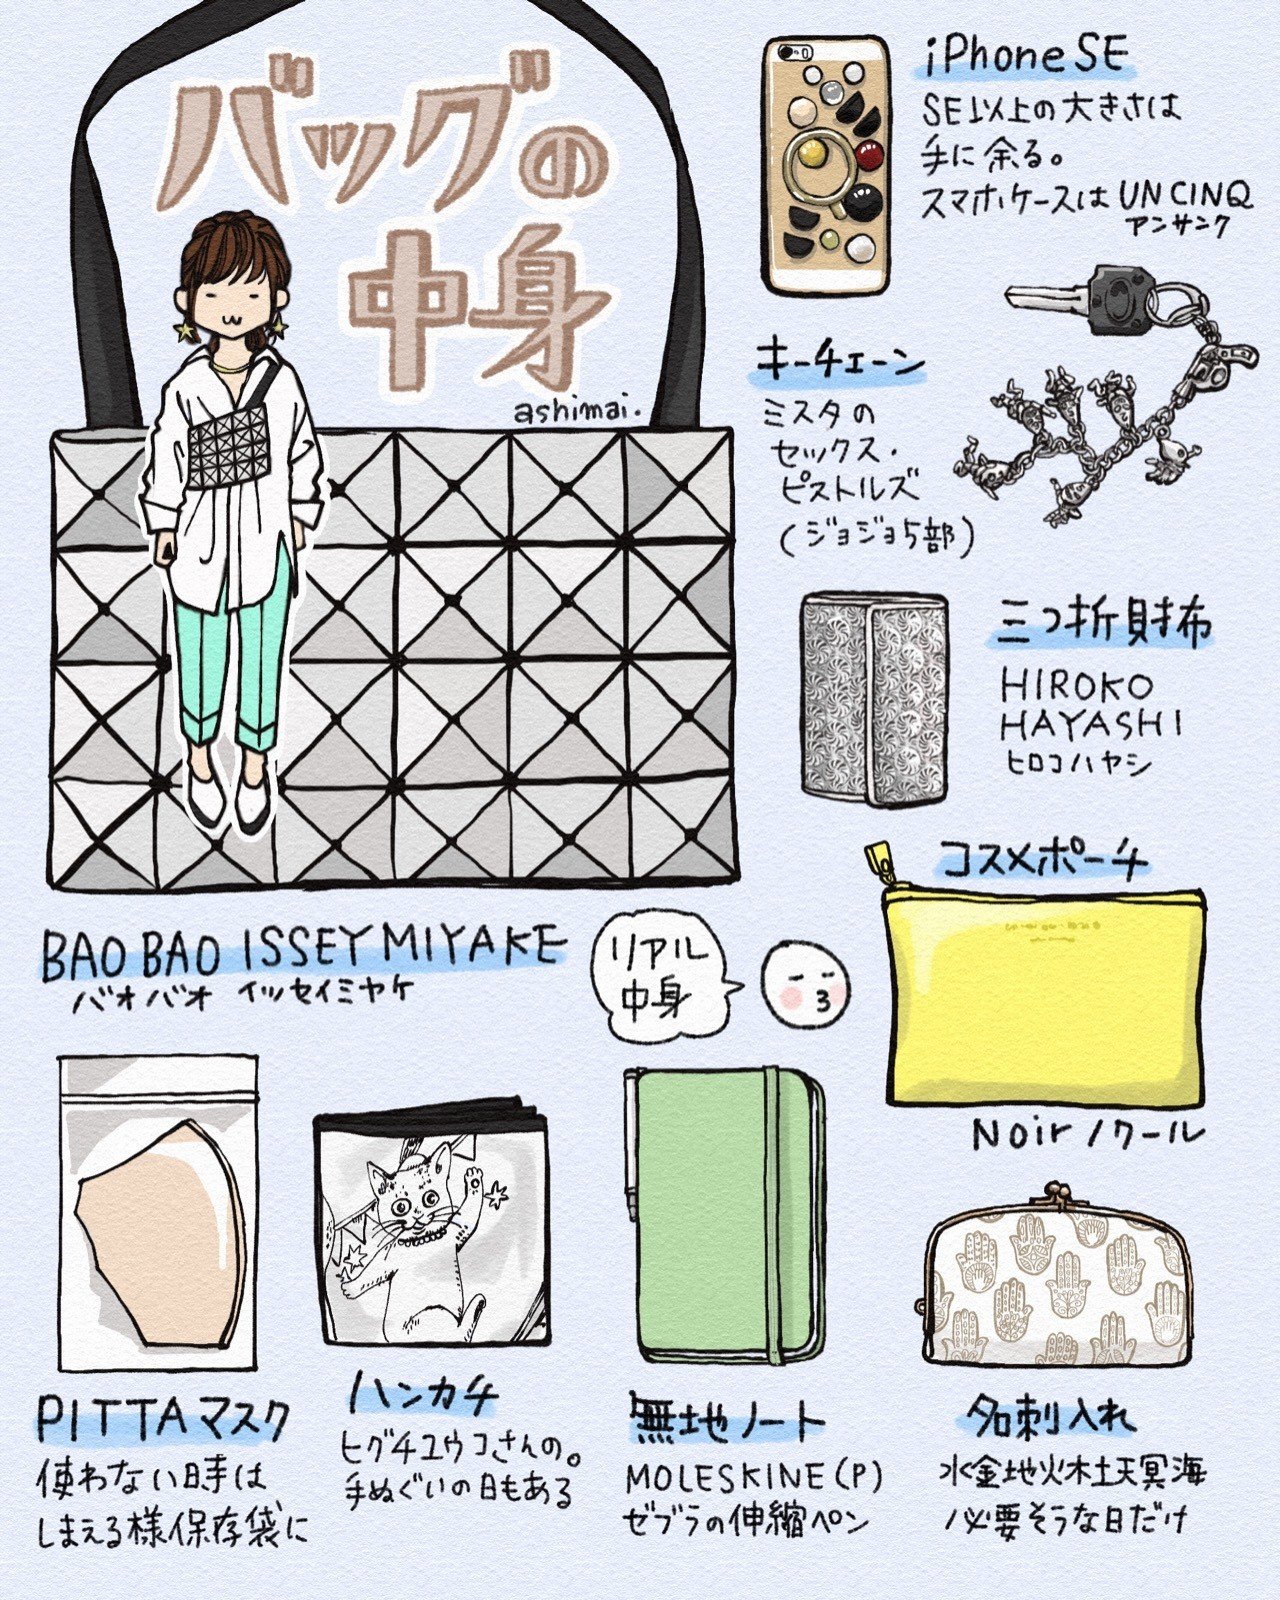 バッグの
中身
ashimai.
iPhone SE
SE以上の大きさは
手に余る。
スマホケースはUN CINQ
アンサンク
キーチェーン
ミスタの
セックス・
ピストルズ
(ジョジョ5部)
三つ折財布
HIROKO
HAYASHI
ヒロコハヤシ
コスメポーチ
Noir ノワール
BAO BAO ISSEY MIYAKE
バオバオ イッセイミヤケ
リアル
中身
PITTAマスク
使わない時は
しまえる様保存袋に
ハンカチ
ヒグチユウコさんの。
手ぬぐいの日もある
無地ノート
MOLESKINE(P)
ゼブラの伸縮ペン
名刺入れ
水金地火木土天冥海
必要そうな日だけ